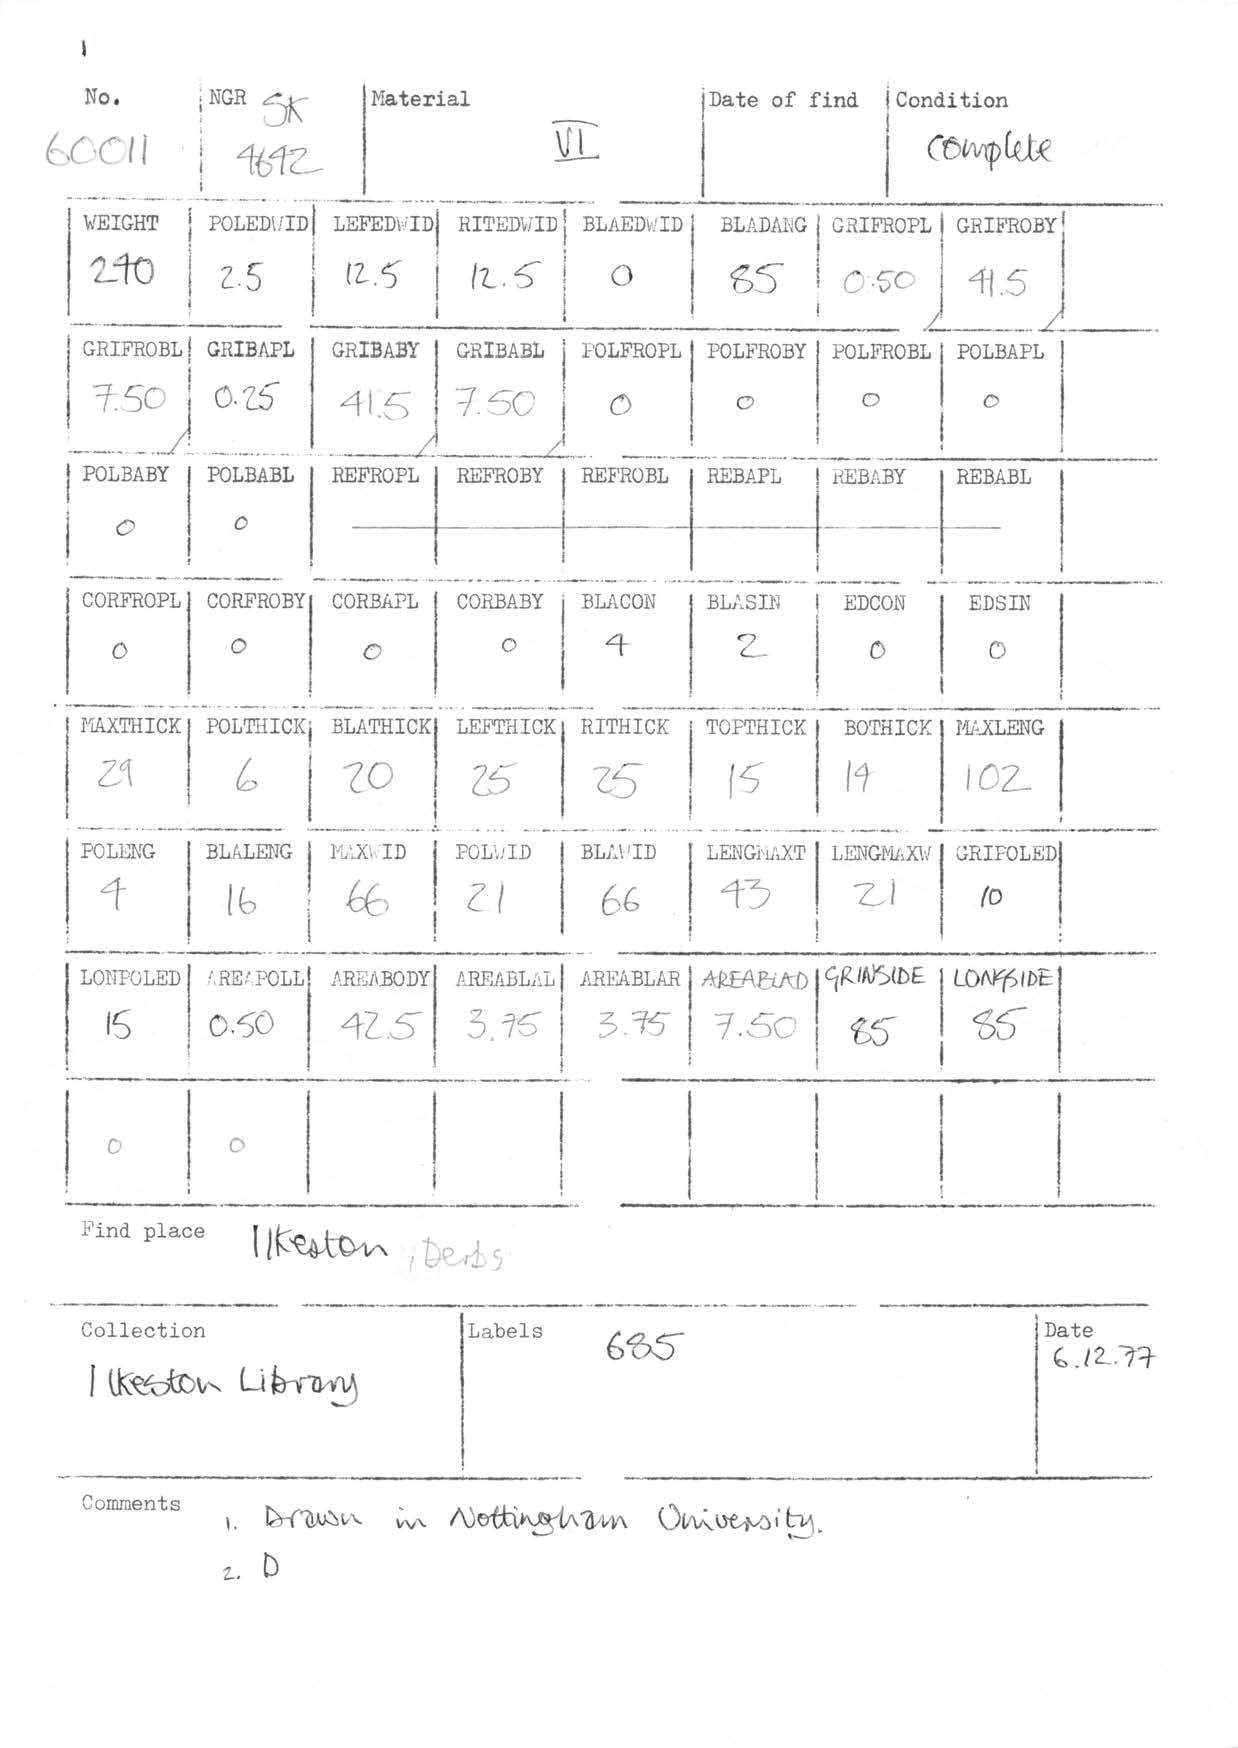 1
No. NGR SK Material Date of find Condition
60011 4642 VI complete
WEIGHT POLEDWID LEFEDWID RITEDWID BLAEDWID BLADANG GRIFROPL GRIFROBY
240 2.5 12.5 12.5 0 85 0.50 41.5
GRIFROBL GRIBAPL GRIBABY GRIBABL POLFROPL POLFROBY POLFROBL POLBAPL
7.50 0.25 41.5 7.50 0 0 0 0
POLBABY POLBABL REFROPL REFROBY REFROBL REBAPL REBABY REBABL
0 0
CORFROPL CORFROBY CORBAPL CORBABY BLACON BLASIN EDCON EDSIN
0 0 0 0 4 2 0 0
MAXTHICK POLTHICK BLATHICK LEFTHICK RITHICK TOPTHICK BOTHICK MAXLENG
29 6 20 25 25 15 14 102
POLENG BLALENG MAXWID POLWID BLAWID LENGMAXT LENGMAXW GRIPOLED
4 16 66 21 66 43 21 10
LONPOLED AREAPOLL AREABODY AREABLAL AREABLAR AREABLAD GRINSIDE LONGSIDE
15 0.50 42.5 3.75 3.75 7.50 85 85
0 0
Find place Ilkeston, Derbs
Collection Labels 685 Date
Ilkeston Library 6.12.77
Comments 1. Drawn in Nottingham University.
2. D